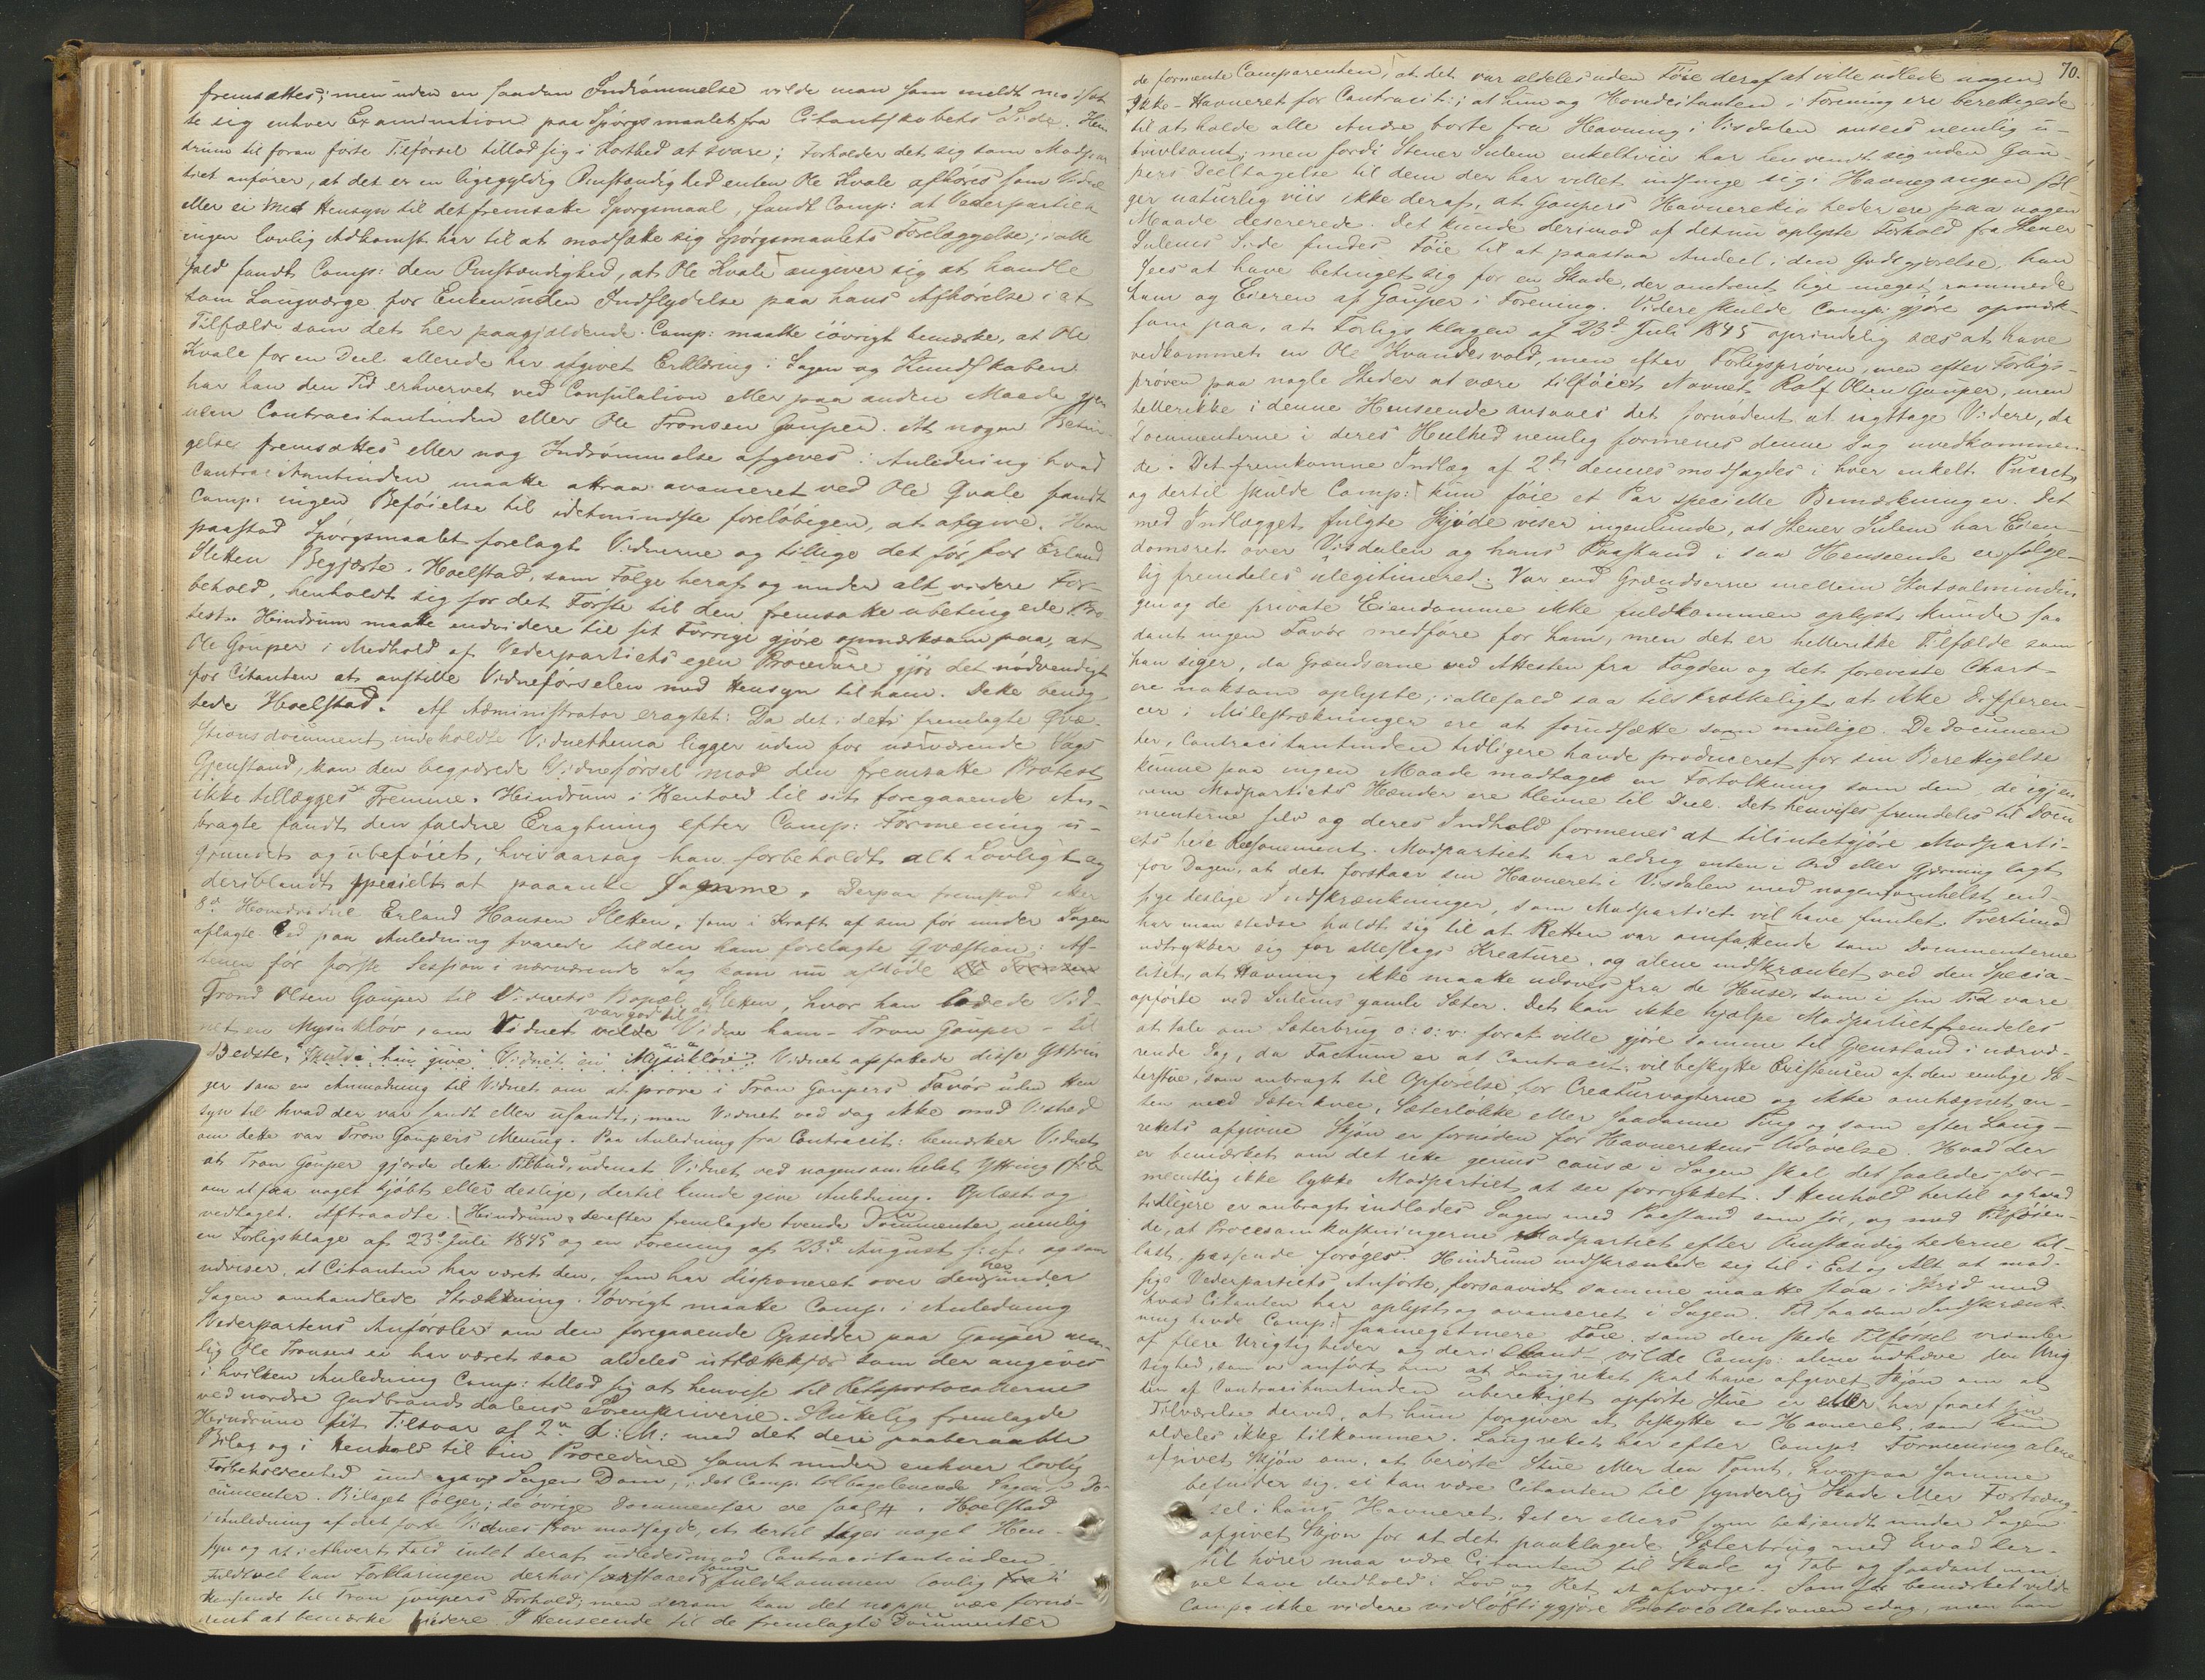 fremsættes; men uden en saadan Indrømmelse vilde man som meldt modsæt
te sig enhver Examination paa Spørgsmaalet fra Citantskabets Side. Hein
drum til foran førte Tilførsel tillod sig i Korthed at svare; Forholder det sig som Modpar
tiet anfører, at det er en ligegyldig Omstændighed enten Ole Kvale afhøres som Vidne
eller ei Med Hensyn til det fremsatte Spørgsmaal, fandt Comp: at Vederpartiet
ingen lovlig Adkomst har til at modsætte sig Spørgsmaalets Forelæggelse; i alle
Fald fandt Comp: den Omstændighed, at Ole Kvale angiver sig at handle
som Laugværge for Enken uden Indflydelse paa hans Afhørelse i et
Tilfælde som det her paagjældende. Comp: maatte iøvrigt bemærke, at Ole
Kvale for en Deel allerede har afgivet Erklæring i Sagen og Kundskaben
har han den Tid erhvervet ved Consulation eller paa anden Maade gjen
nem Contracitantinden eller Ole Tronsen Gouper. At nogen Betin-
gelse fremsættes eller nog Indrømmelse afgives i Anledning hvad
Contracitantinden maatte attraa avanceret ved Ole Qvale fandt
Comp: ingen Beføielse til idetmindste foreløbigen, at afgive. Han
paastod Spørgsmaalet forelagt Vidnerne og tillige det før for Erland
Sletten Begjærte. Hoelstad, som Følge heraf og under alt videre For-
behold, henholdt sig for det Første til den fremsatte ubetingede Pro
test. Heindrum maatte endvidere til sit Forrige gjøre opmærksom paa, at
Ole Gouper i Medhold af Vederpartiets egen Procedure gjør det nødvendigt
for Citanten at anstille Vidneførselen med Hensyn til ham. Dette benæg
tede Hoelstad. Af Administrator eragtet: Da det i det fremlagte Qvæ-
stionsdocument indeholdte Vidnethema ligger uden for nærværende Sags
Gjenstand, kan den begjærede Vidneførsel mod den fremsatte Protest
ikke tillægges Fremme. Heindrum i Henhold til sit foregaaende An-
bragte fandt den faldne Eragtning efter Comp: Formening u-
grundet og ubeføiet, hvisaarsag han forbeholdt alt Lovligt og
deriblandt specielt at paaanke samme. Derpaa fremstod
8de Hovedvidne Erland Hansen Sletten, som i Kraft af sin før under Sagen
aflagte Ed paa Anledning svarede til den ham forelagte Qvæstion: Af-
tenen før første Session i nærværende Sag kom nu afdøde Ole Tronsen
Trond Olsen Gouper til Vidnets Bopæl Sletten, hvor han lovede Vid-
var god til at
net en Mysukløv, om Vidnet vilde Vidne ham - Tron Gouper - til
Bedste, skulde han give Vidnet en Mysukløv. Vidnet opfattede disse Yttrin
ger som en Anmodning til Vidnet om at prove i Tron Goupers Favør uden Hen
syn til hvad der var sandt eller usandt; men Vidnet ved dog ikke med Vished
om dette var Tron Goupers Mening. Paa Anledning fra Contracit: bemærker Vidnet
at Tron Gouper gjorde dette Tilbud, udenat Vidnet ved nogensomhelst Yttring
om at faa noget kjøbt eller deslige, dertil kunde give Anledning. Oplæst og
vedtaget. Aftraadte. Heindrum derefter fremlagde tvende Documenter nemlig
en Forligsklage af 23de Juli 1845 og en Forening af 23de August s: A: og som
udviser, at Citanten har været den, som har disponeret over den her under
Sagen omhandlede Strækning. Iøvrigt maatte Comp: i Anledning
Vederpartens Anførsler om den foregaaende Opsidder paa Gouper nem-
lig Ole Tronsen ei har været saa aldeles utrættekjær som der angives
i hvilken Anledning Comp: tillod sig at henvise til Retsprotocollerne
ved nordre Gudbrandsdalens Sorenskriverie. Slutelig fremlagde
Heindrum sit Tilsvar af 2den d: M: med det deri paaberaabte
Bilag og i Henhold til sin Procedure samt under enhver lovlig
Forbeholdenhed sagens Dom, idet Comp: tilbageleverede Sagens Do-
cumenter. Bilaget følger; de øvrige Documenter ere saal. Hoelstad
i Anledning af det sidste Vidnes Prov modsagde, at dertil toges noget Hen-
syn og at i ethvert Fald intet deraf udledes mod Contracitantinden.
Fuldtvel kan Forklaringen derhos forstaaes som fuldkommen lovlig i
Henseende til Tron Goupers Forhold; men derom kan det neppe være fornø-
dent at bemærke videre. I Henseende til de fremlagte Documenter
70.
de formente Comparenten, at det var aldeles uden Føie deraf at ville udlede nogen
Ikke-Havneret for Contracit:; at hun og Hovedcitanten i Forening ere berettigede
til at holde alle Andre borte fra Havning i Visdalen ansees nemlig u-
tvivlsomt; men fordi Stener Sulem enkeltviis har henvendt sig uden Gou-
pers Deeltagelse til dem der har villet indsnige sig i Havnegangen føl
ger naturlig viis ikke deraf, at Goupers Havnerettigheder ere paa nogen
Maade desererede. Det kunde derimod af det nu oplyste Forhold fra Stener
Sulems Side findes Føie til at paastaa Andeel i den Godtgjørelse, han
sees at have betinget sig for en Skade, der omtrent lige meget rammede
ham og Eieren af Gouper i Forening. Videre skulde Comp: gjøre opmærk-
som paa, at Forligsklagen af 23de Juli 1845 oprindelig sees at have
vedkommet en Ole Kvandesvold, men efter Forligsprøven, men efter Forligs-
prøven paa nogle Steder at være tilføiet Navnet Rolf Olsen Gouper, men
hellerikke i denne Henseende ansaaes det fornødent at iagttage Videre, da
Documenterne i deres Heelhed nemlig formenes denne Sag uvedkommen-
de. Det fremkomne Indlæg af 2den dennes modsagdes i hver enkelt Punct,
og dertil skulde Comp: kun føie et Par specielle Bemærkninger. Det
med Indlægget fulgte Skjøde viser ingenlunde, at Stener Sulem har Eien-
domsret over Visdalen og hans Paastand i saa Henseende er følge-
lig fremdeles ulegitimeret. Var end Grændserne mellem Statsalmindin
gen og de private Eiendomme ikke fuldkommen oplyst kunde saa
dant ingen Favør medføre for ham, men det er hellerikke Tilfælde som
han siger, da Grændserne ved Attesten fra Fogden og det foreviste Chart
ere noksom oplyste; iallefald saa tilstrækkeligt at ikke Differen-
cer i Milestrækninger ere at forudsætte som mulige. De Documen
ter, Contracitantinden tidligere havde produceret for sin Berettigelse
kunne paa ingen Maade modtages en Fortolkning som den, de igjen
nem Modpartiets Hænder ere blevne til Deel. Det henvises fremdeles til Docu
menterne selv og deres Indhold formenes at tilintetgjøre Modparti-
ets hele Resonement. Modpartiet har aldrig enten i Ord eller Gjerning lagt
for Dagen, at det forstaar sin Havneret i Visdalen med nogensomhelst, end-
sige deslige Indskrænkninger, som Modpartiet vil have fundet. Tvertimod
har man stedse holdt sig til at Retten var omfattende som Documenterne
udtrykker sig for alleslags Kreature, og alene indskrænket ved den Specia-
litet, at Havning ikke maatte udøves fra de Huse, som i sin Tid vare
opførte ved Sulems gamle Sæter. Det kan ikke hjælpe Modpartiet fremdeles
at tale om Sæterbrug o: s: v: forat ville gjøre samme til Gjenstand i nærvæ-
rende Sag, da Factum er at Contracit: vil beskytte Existensen af den eenlige Sæ-
terstue, som anbragt til Opførelse for Creaturvogterne og ikke omhægnet en-
ten med Sæterkvee, Sæterløkke eller Saadanne Ting og som efter Laug-
rettets afgivne Skjøn er fornøden for Havnerettens Udøvelse. Hvad der
er bemærket om det rette genus causæ i Sagen skal det saaledes for-
mentlig ikke lykkes Modpartiet at see forrykket. I Henhold hertil og hvad
tidligere er anbragt indlades Sagen med Paastand som før, og med Tilføien-
de, at Procesomkostningerne Modpartiet efter Omstændighederne til-
lagt, passende forøges. Heindrum indskrænkede sig til i Eet og Alt at mod-
sige Vederpartiets Anførte, forsaavidt samme maatte staa i Strid med
hvad Citanten har oplyst og avanceret i Sagen. Til saadan Indskrænk-
ning havde Comp: saameget mere Føie, som den skede Tilførsel vrimler
af flere Urigtigheder og deriblandt vilde Comp: alene udhæve den Urig
tighed, som er anført om at Laugrettet skal have afgivet Skjøn om at
den af Contracitantinden uberettiget opførte Stue er eller har faaet sin
Tilværelse derved, at hun foregiver at beskytte en Havneret, som hun
aldeles ikke tilkommer. Laugrettet har efter Comp: Formening alene
afgivet Skjøn om, at berørte Stue eller den Tomt, hvorpaa samme
befinder sig, ei kan være Citanten til synderlig Skade eller Fortræng-
sel i hans Havneret. Det er ellers som bekjendt under Sagen
afgivet Skjøn for at det paaklagede Sæterbrug med hvad her-
til hører maa være Citanten til Skade og Tab og saadant maa
vel have Medhold i Lov og Ret at afværge. Som før bemærket vilde
Comp: ikke videre vidløftiggjøre Protocollationen idag, men han